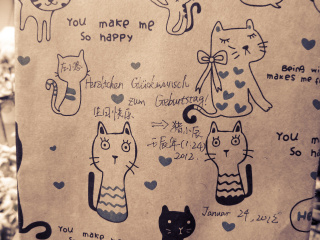 You make me
So happy
Being wi
makes me f
Herzlichen Glückwunsch
zum Geburtstag!
生日快乐
2012.
You m
So h
Januar 24, 2012
You make
He